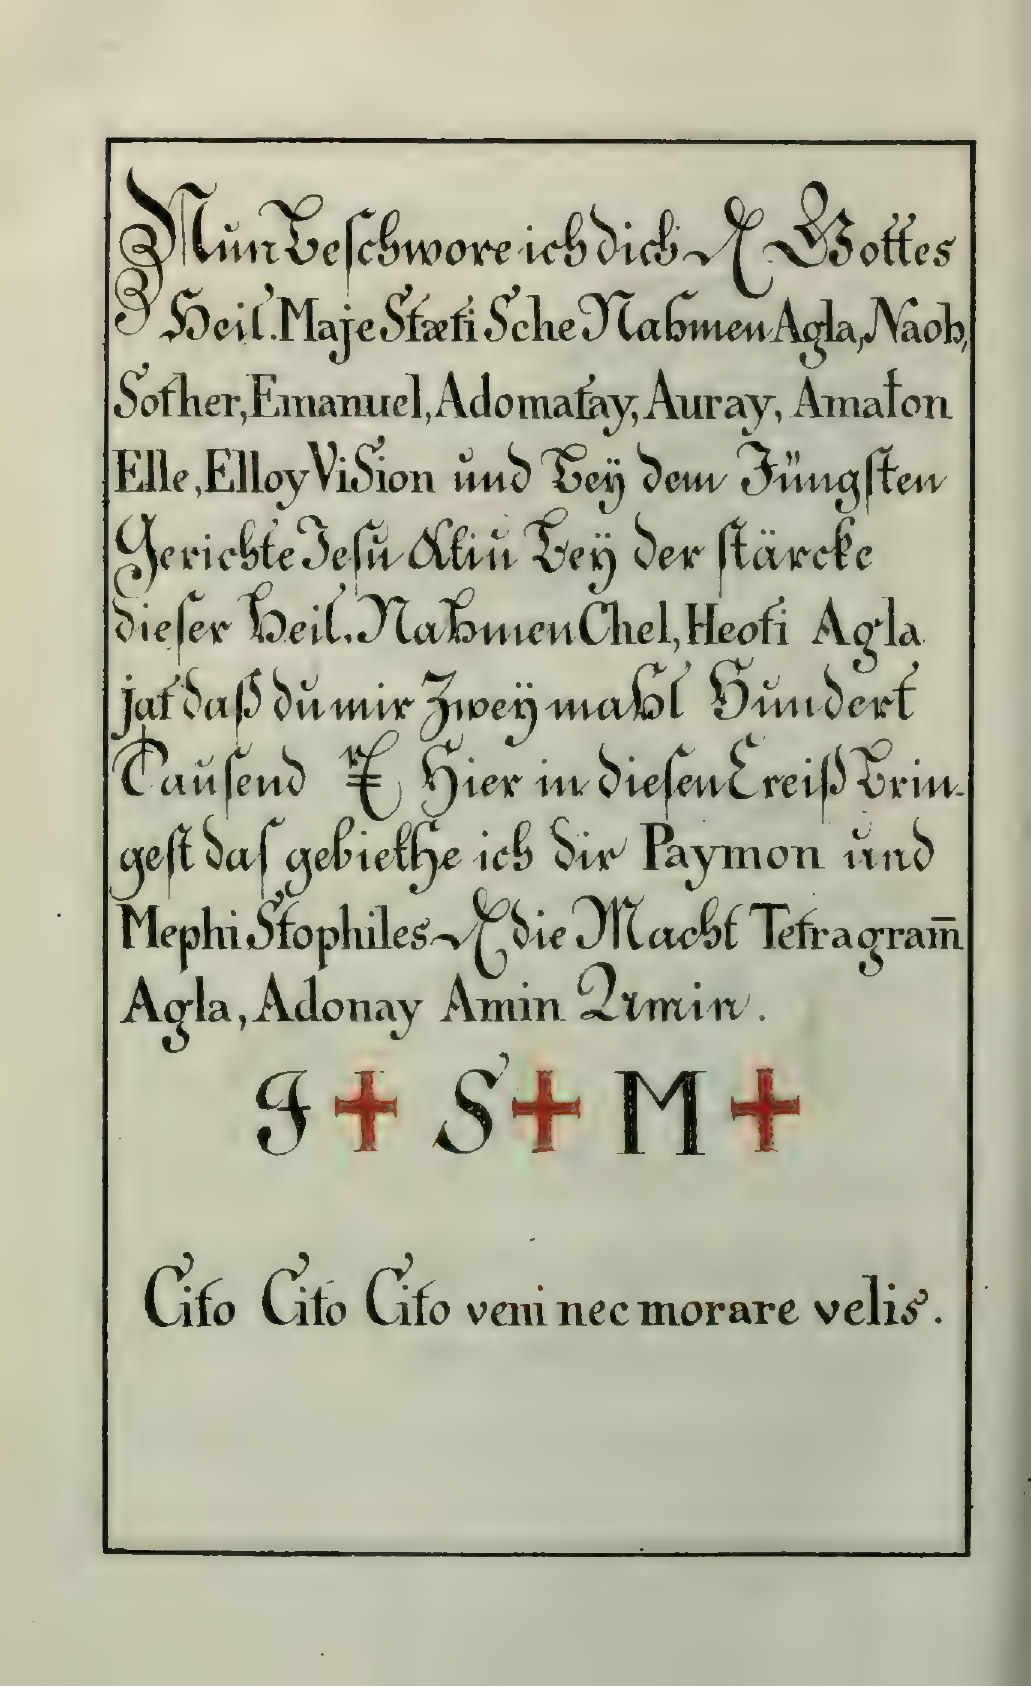 Nun beschwore ich dich N Gottes
Heil. MajeStætiSche Nahmen Agla, Naob,
Sother, Emanuel, Adomatay, Auray, Amaton
Elle, Elloy ViSion und bey dem Jüngsten
Gerichte Jesu bey der stärcke
dieser Heil. Nahmen Chel, Heoti Agla
jat daß du mir Zwey mahl Hundert
Tausend Hier in diesen Creiß brin-
gest das gebiethe ich dir Paymon und
MephiStophiles die Macht Tetragram̄
Agla, Adonay Amin Amin.
J ✠ S ✠ M ✠
Cito Cito Cito veni nec morare velis.